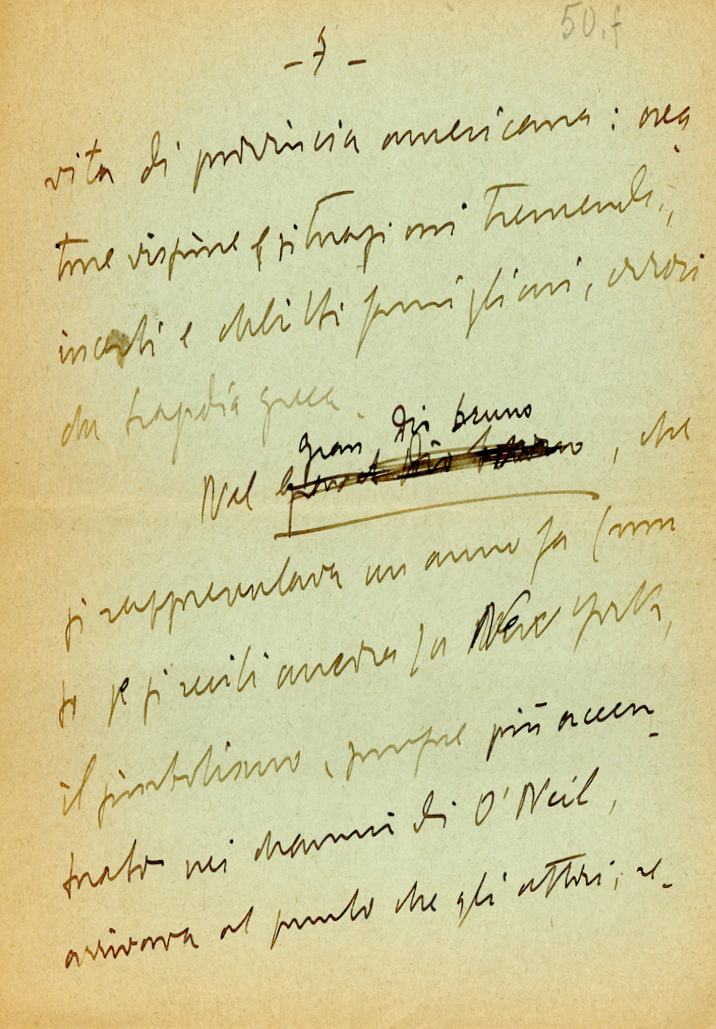 50.f
- 7 -
vita di provincia americana: crea
ture visive e situazioni tremende,
incesti e delitti famigliari, orrori
da tragedia greca.
gran Dio bruno
Nel , che
si rappresentava un anno fa (non
so se si reciti ancora) a New York,
il simbolismo, sempre più accen-
tuato nei drammi di O'Neil,
arrivava al punto che gli attori, re-